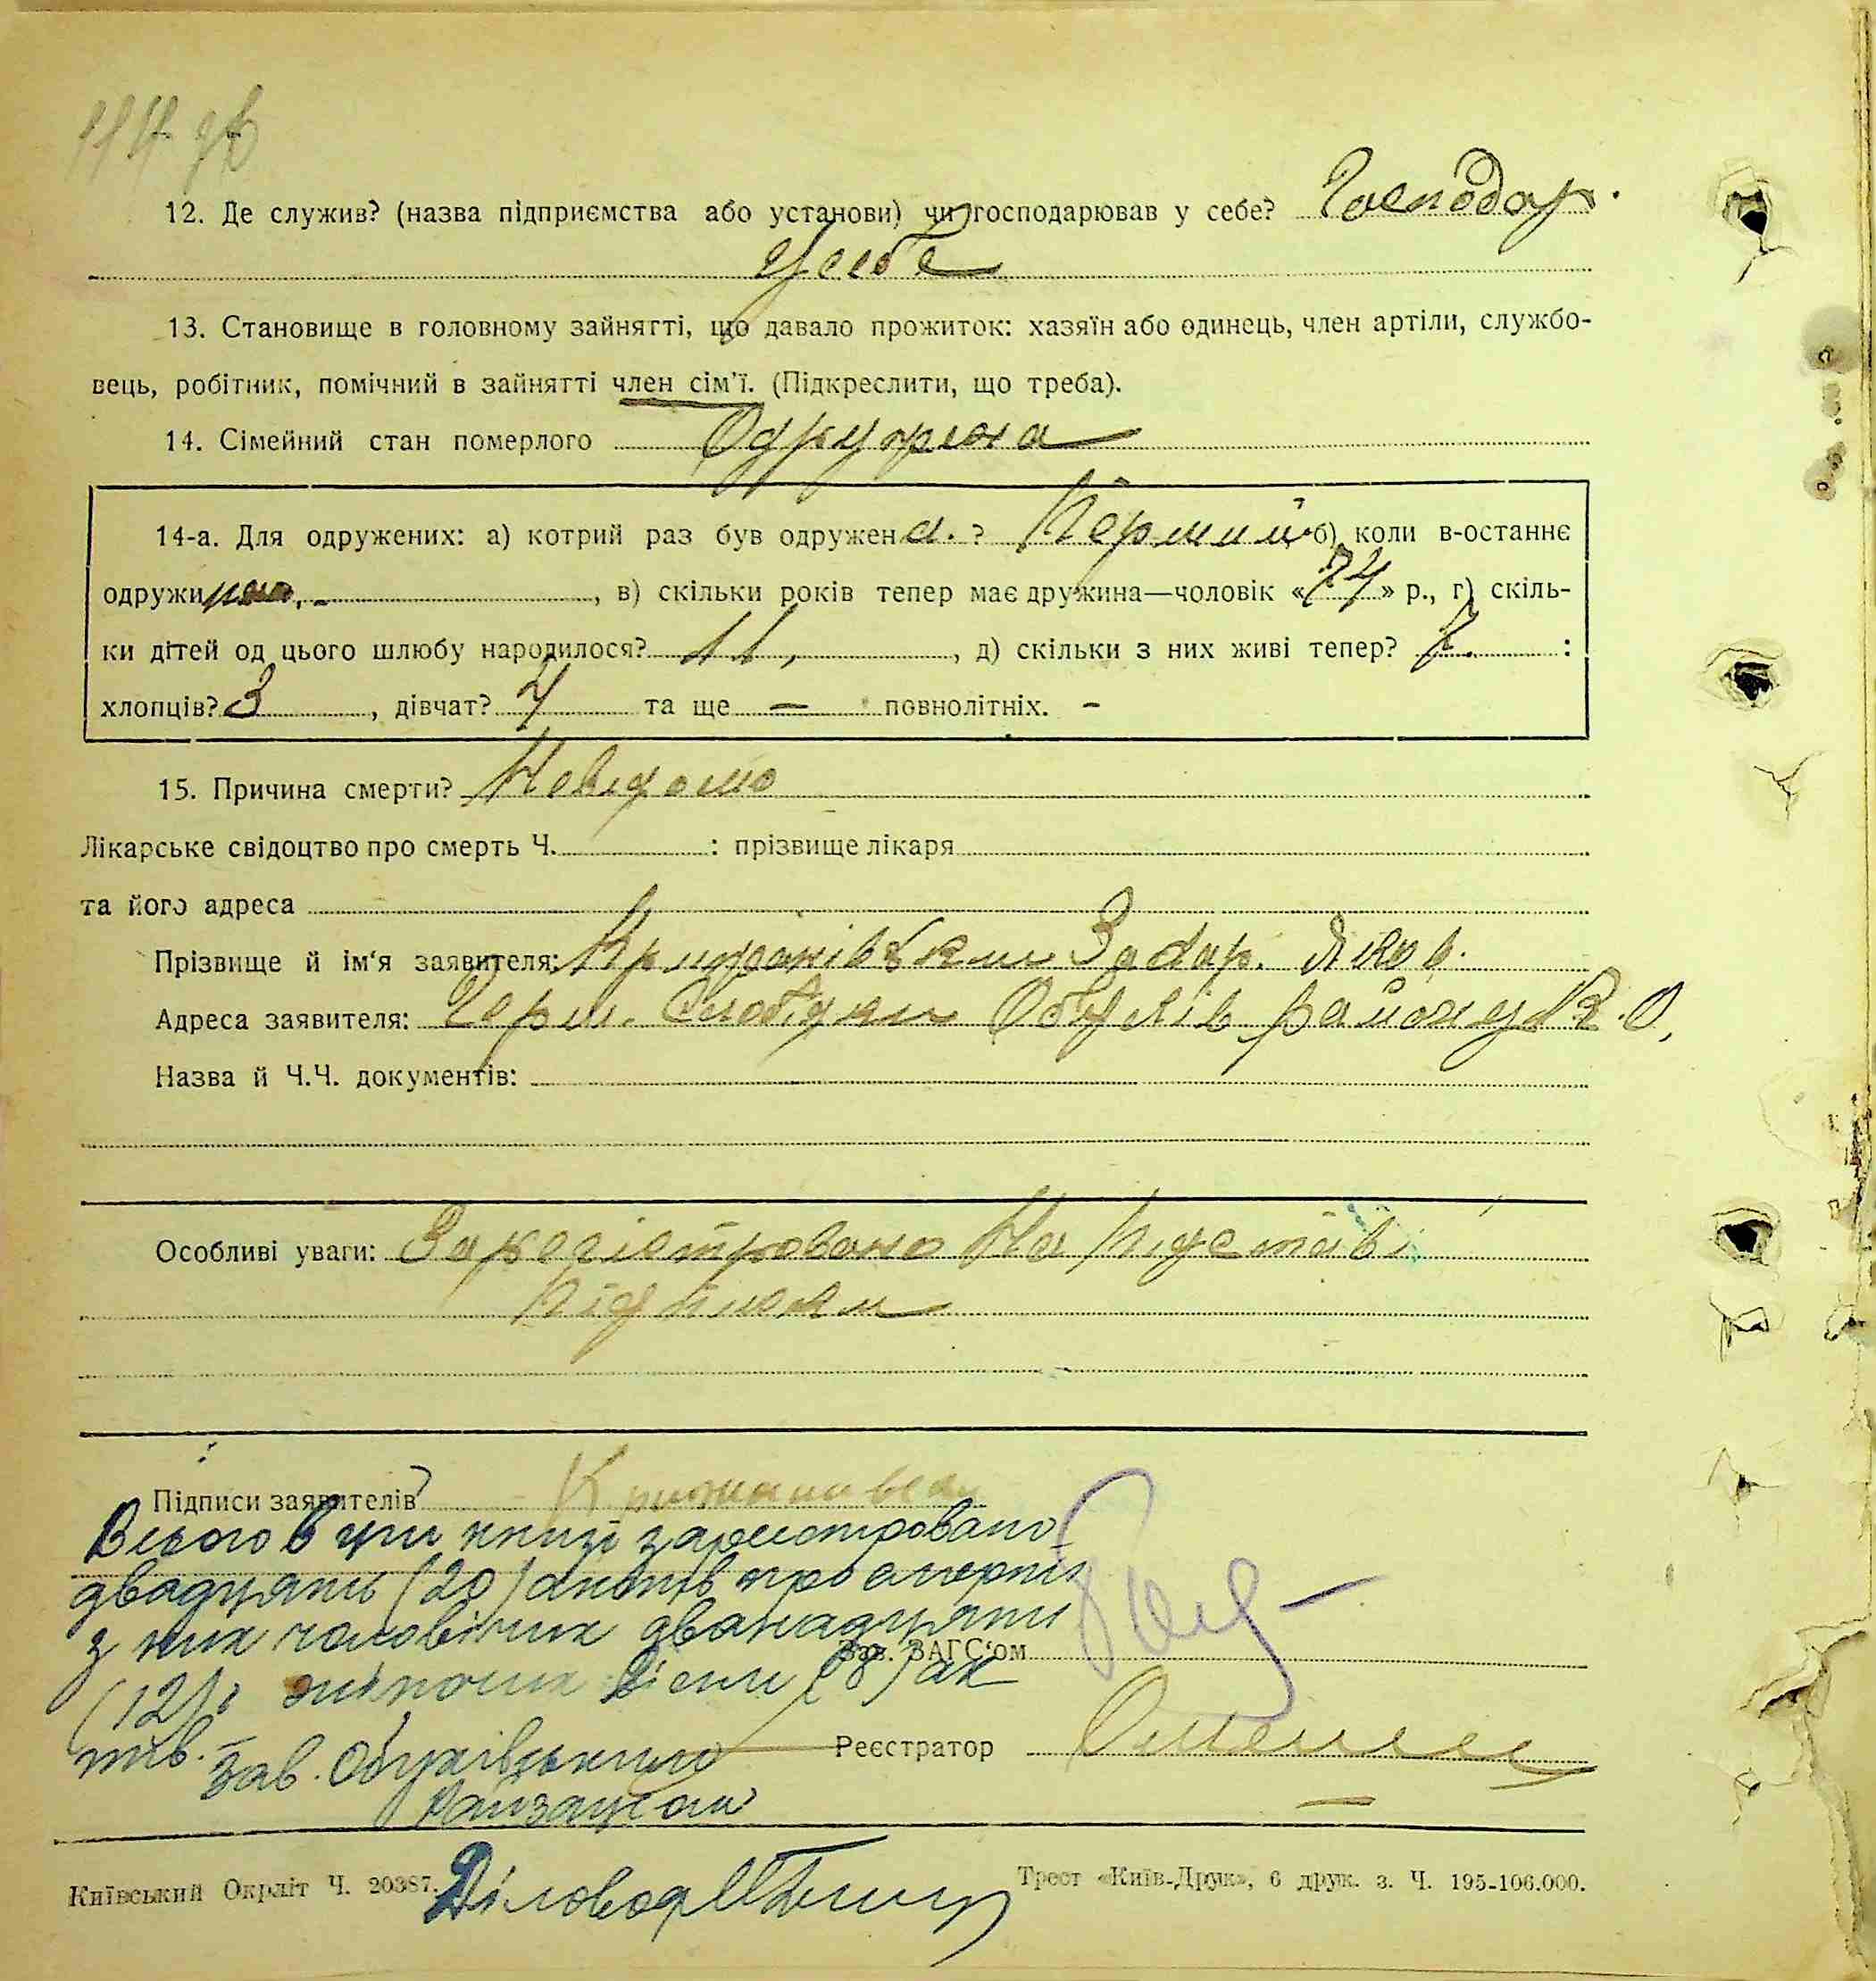 12. Де служив? (назва підприємства або установи) чи господарював у себе? Господар.
у себе
13. Становище в головному зайнятті, що давало прожиток: хазяїн або одинець, член артіли, службо-
вець, робітник, помічний в зайнятті член сім'ї. (Підкреслити, що треба).
14. Сімейний стан померлого Одружена
14-а. Для одружених: а) котрий раз був одружена.? Перший б) коли в-останнє
одружи , в) скільки років тепер має дружина—чоловік «74» р., г) скіль-
ки дітей од цього шлюбу народилося? 11, , д) скільки з них живі тепер? 7. :
хлопців? 3 , дівчат? 4 та ще — повнолітніх. –
15. Причина смерти? Невідомо
Лікарське свідоцтво про смерть Ч. : прізвище лікаря
та його адреса
Прізвище й ім'я заявителя: Крижанівськи Захар. Яков.
Адреса заявителя: Герм. Слобідки Обухів району К. О.
Назва й Ч.Ч. документів:
Особливі уваги: Зареєістровано На підставі
Підписки
Підписи заявителів
Всього в ций книзі зареєстровано
двадцять (20) актів про смерть
з них чоловічих дванадцять
Зав. ЗАГС'ом
(12) і жіночих вісім (8) ак
тів. – Зав. Обухівського
Реєстратор
райзагсом
Київський Окрліт Ч. 20387.
Діловод
Трест «Київ-Друк», 6 друк. з. Ч. 195-106.000.